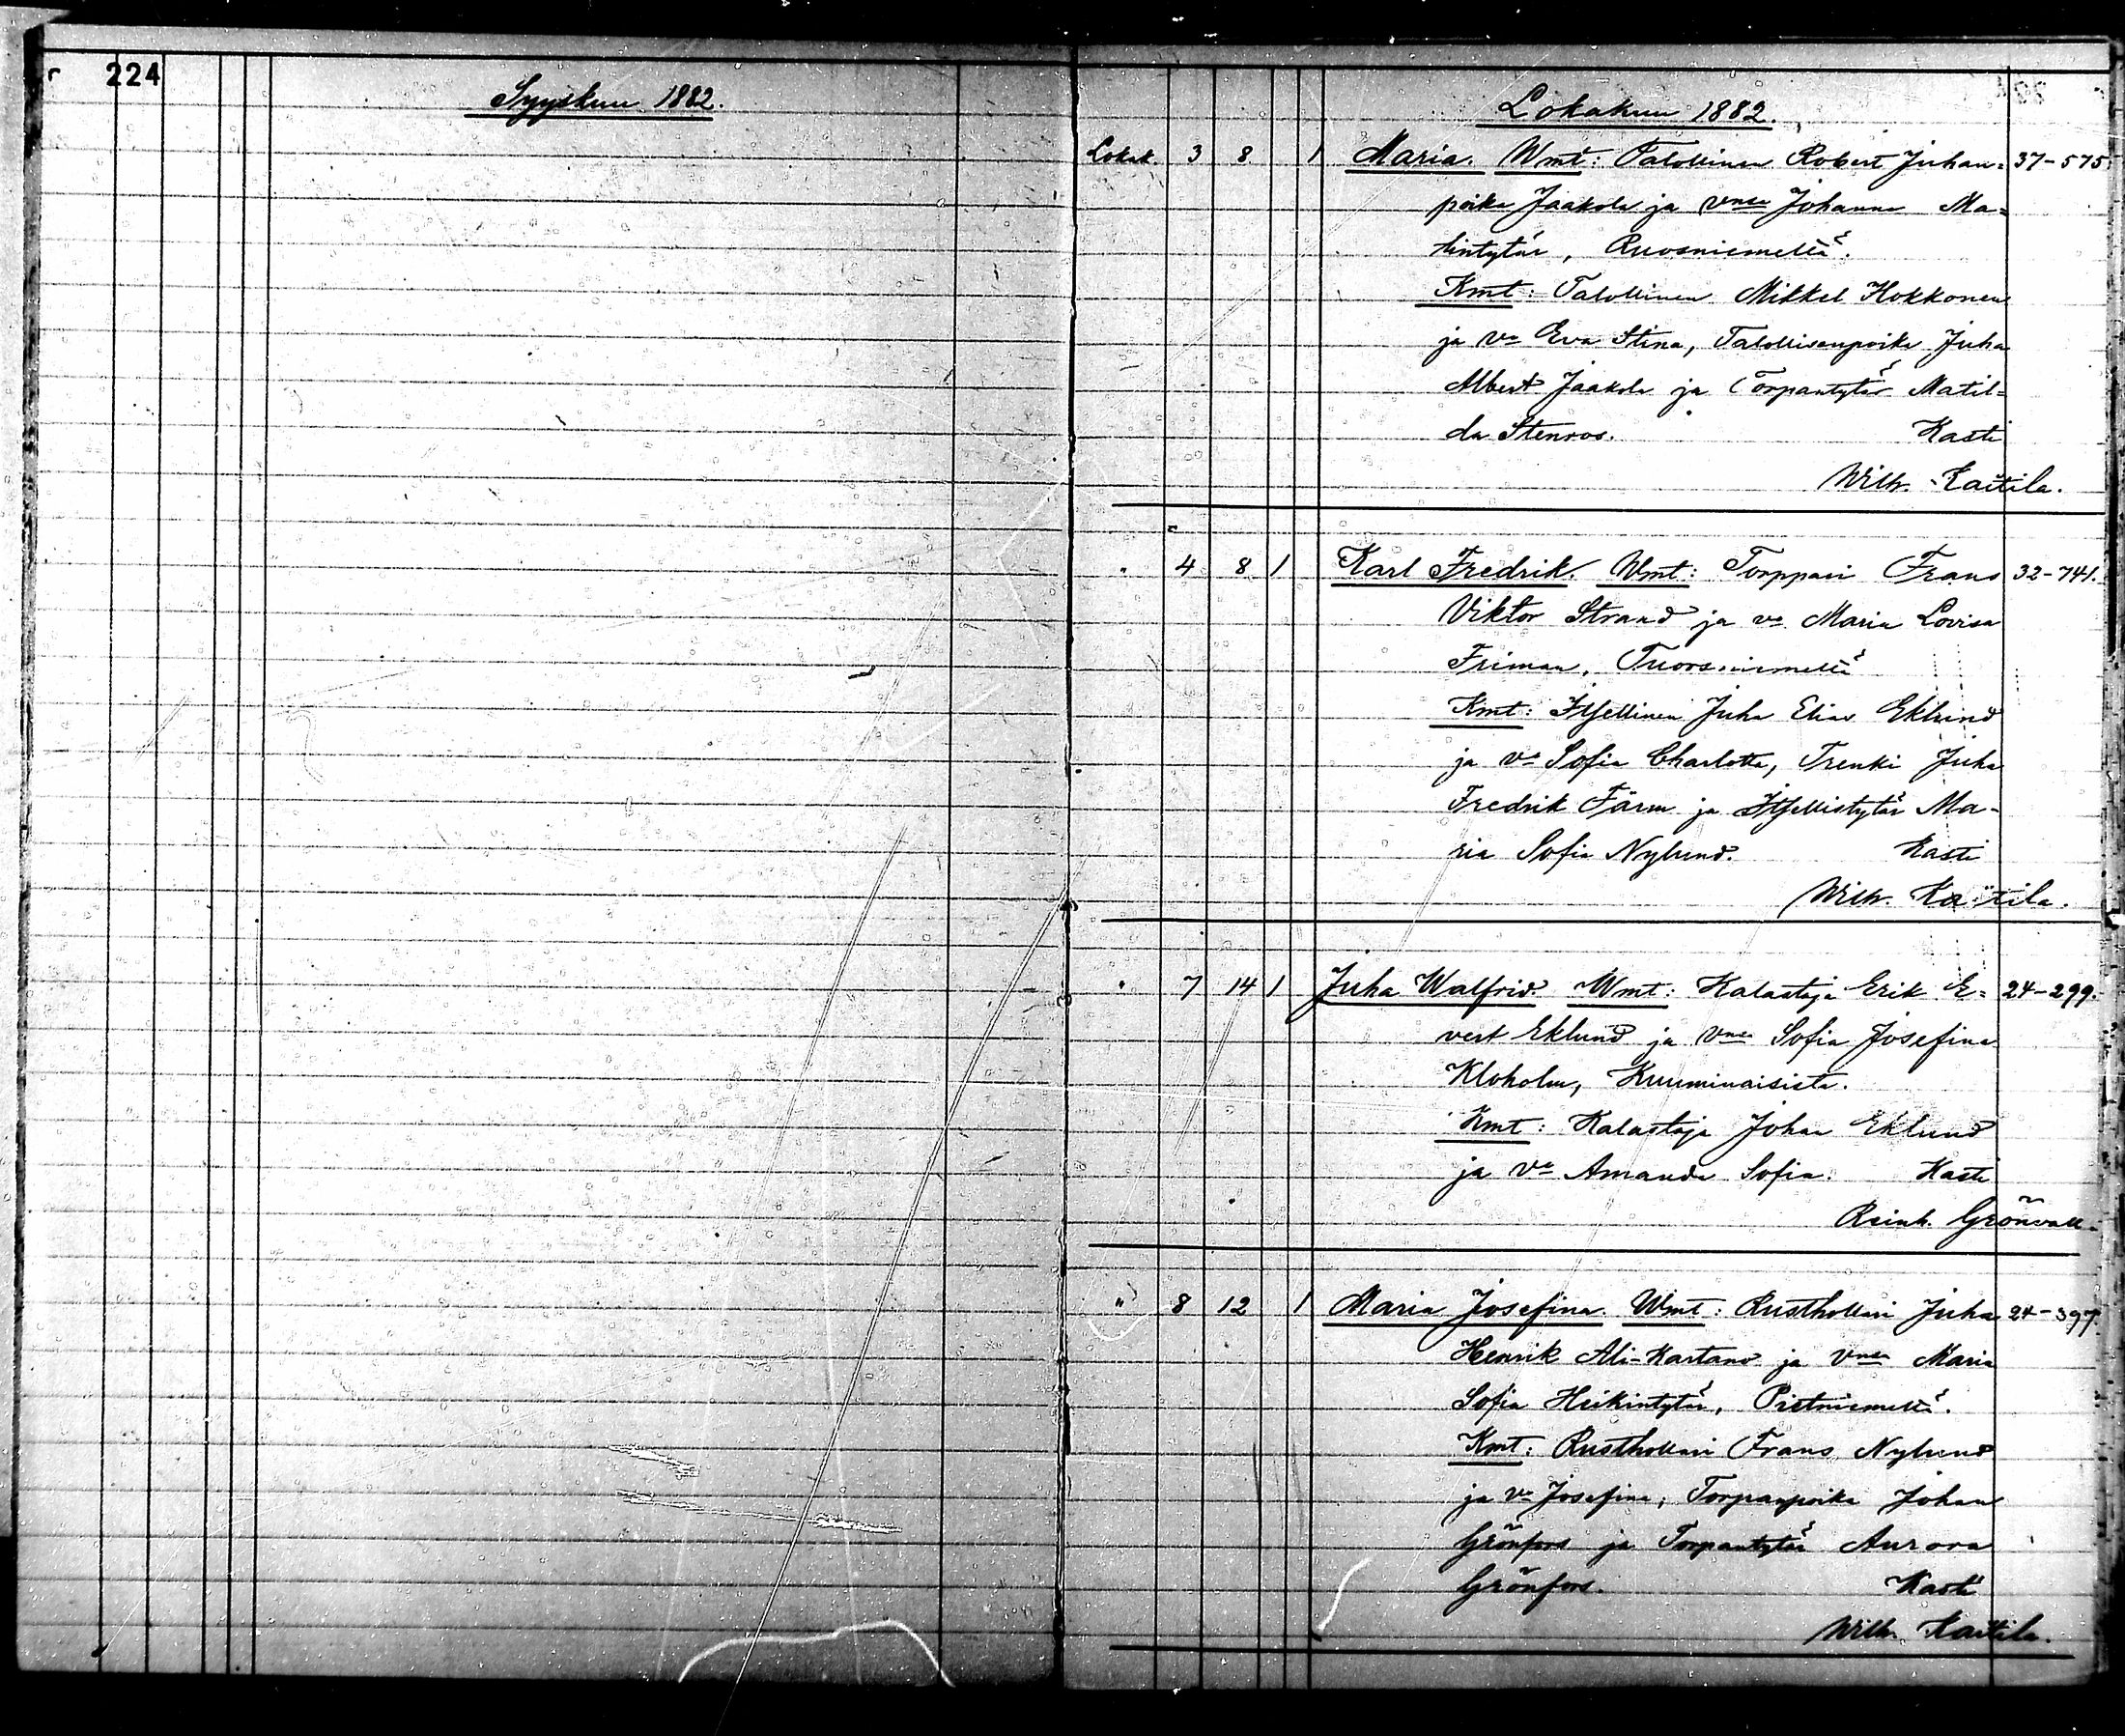 224
Syyskuu 1882.
Lokakuu 1882.
Lokak. 3 8 1 Maria. Wmt: Talollinen Robert Juhan= 37-575.
poika Jaakola ja vmsa Johanna Ma=
tintytär, Ruosniemeltä.
Kmt: Talollinen Mikkel Hokkonen
ja va Eva Stina, Talollisenpoika Juha
Albert Jaakola ja Torpantytär Matil=
da Stenroos. Kasti
Wilh. Kaitila.
" 4 8 1 Karl Fredrik. Wmt: Torppari Frans 32-741.
Viktor Strand ja va Maria Lovisa
Friman, Tuorsniemeltä
Kmt: Itsellinen Juha Elias Eklund
ja va Sofia Charlotta, Trenki Juha
Fredrik Färm ja Itsellistytär Ma-
ria Sofia Nylund. Kasti
Wilh. Kaitila.
" 7 14 1 Juha Walfrid. Wmt: Kalastaja Erik E= 24-299.
vert Eklund ja vmsa Sofia Josefina
Kloholm, Kuuminaisista.
Kmt: Kalastaja Johan Eklund
ja va Amanda Sofia. Kasti
Reinh. Grönvall.
" 8 12 1 Maria Josefina. Wmt: Rusthollari Juha 24-397.
Henrik Ali-Kartano ja vmsa Maria
Sofia Heikintytär, Pietniemeltä.
Kmt: Rusthollari Frans Nylund
ja va Josefina, Torpanpoika Johan
Grönfors ja Torpantytär Aurora
Grönfors. Kasti
Wilh. Kaitila.